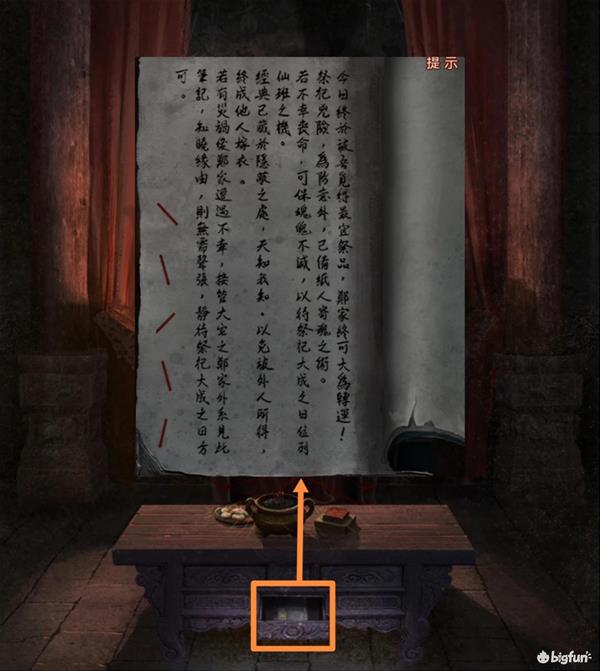 提示
今日終於被吾覓得最宜祭品，鄭家終可大為轉運！
祭祀兇險，為防意外，已備紙人寄魂之術。
若不幸喪命，可保魂魄不滅，以待祭祀大成之日位列
仙班之機。
經典已藏於隱蔽之處，天知我知，以免被外人所得，
終成他人嫁衣。
若有災禍使鄭家遭遇不幸，接管大宅之鄭家外系見此
筆記，知曉緣由，則無需聲張，靜待祭祀大成之日方
可。
bigfun